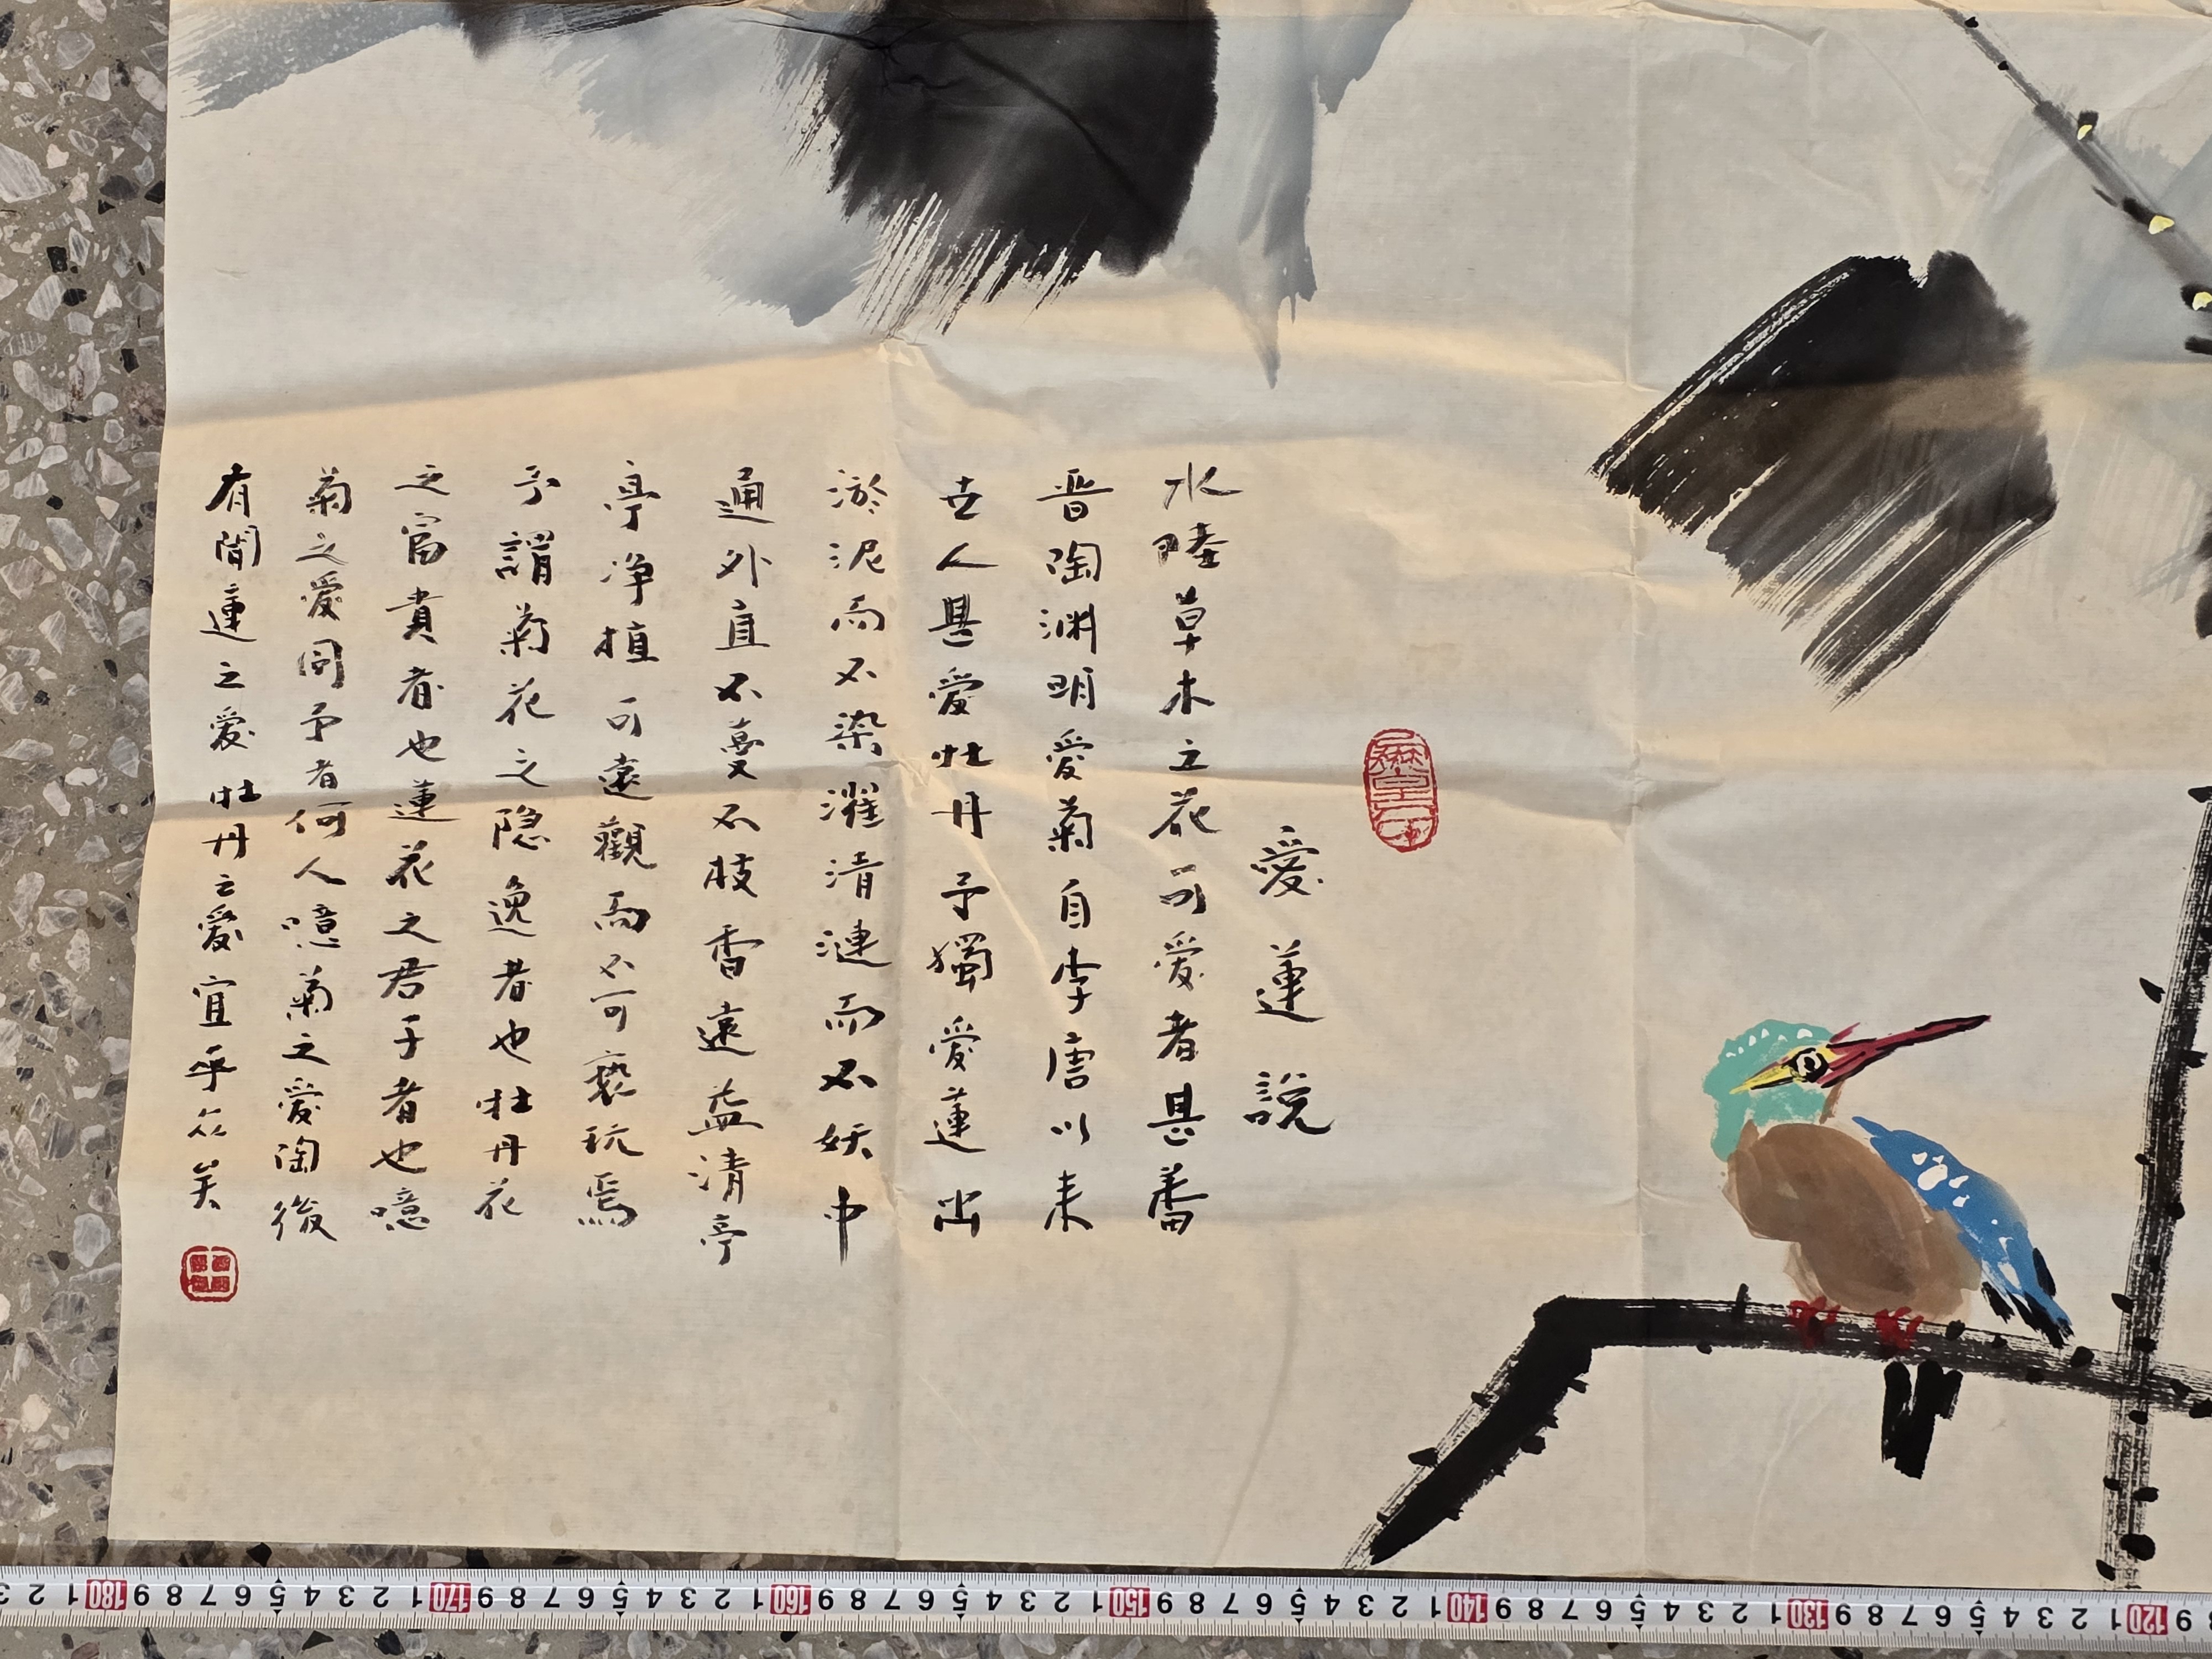 愛蓮說
水陸草木之花可愛者甚蕃
晋陶渊明愛菊自李唐以来
世人甚愛牡丹予獨愛蓮出
淤泥而不染濯清漣而不妖中
通外直不蔓不枝香遠益清亭
亭净植可遠觀而不可褻玩焉
予謂菊花之隐逸者也牡丹花
之富貴者也蓮花之君子者也噫
菊之愛同予者何人噫菊之愛陶後
有聞蓮之愛牡丹之愛宜乎众矣
9 120 1 2 3 4 5 6 7 8 9 130 1 2 3 4 5 6 7 8 9 140 1 2 3 4 5 6 7 8 9 150 1 2 3 4 5 6 7 8 9 160 1 2 3 4 5 6 7 8 9 170 1 2 3 4 5 6 7 8 9 180 1 2 3